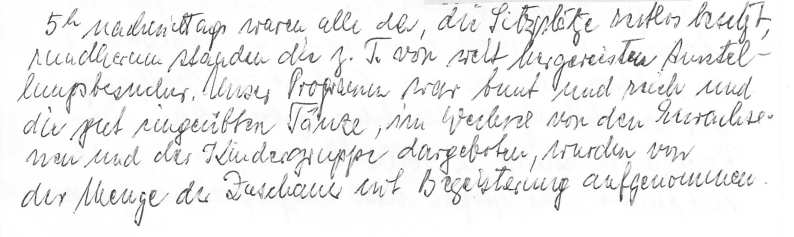 5h nachmittags waren alle da, die Sitzplätze restlos besetzt,
rundherum standen die z. T. von weit hergereisten Ausstel-
lungsbesucher. Unser Programm war bunt und reich und
die gut eingeübten Tänze, im Wechsel von den Erwachse-
nen und der Kindergruppe dargeboten, wurden von
der Menge der Zuschauer mit Begeisterung aufgenommen.